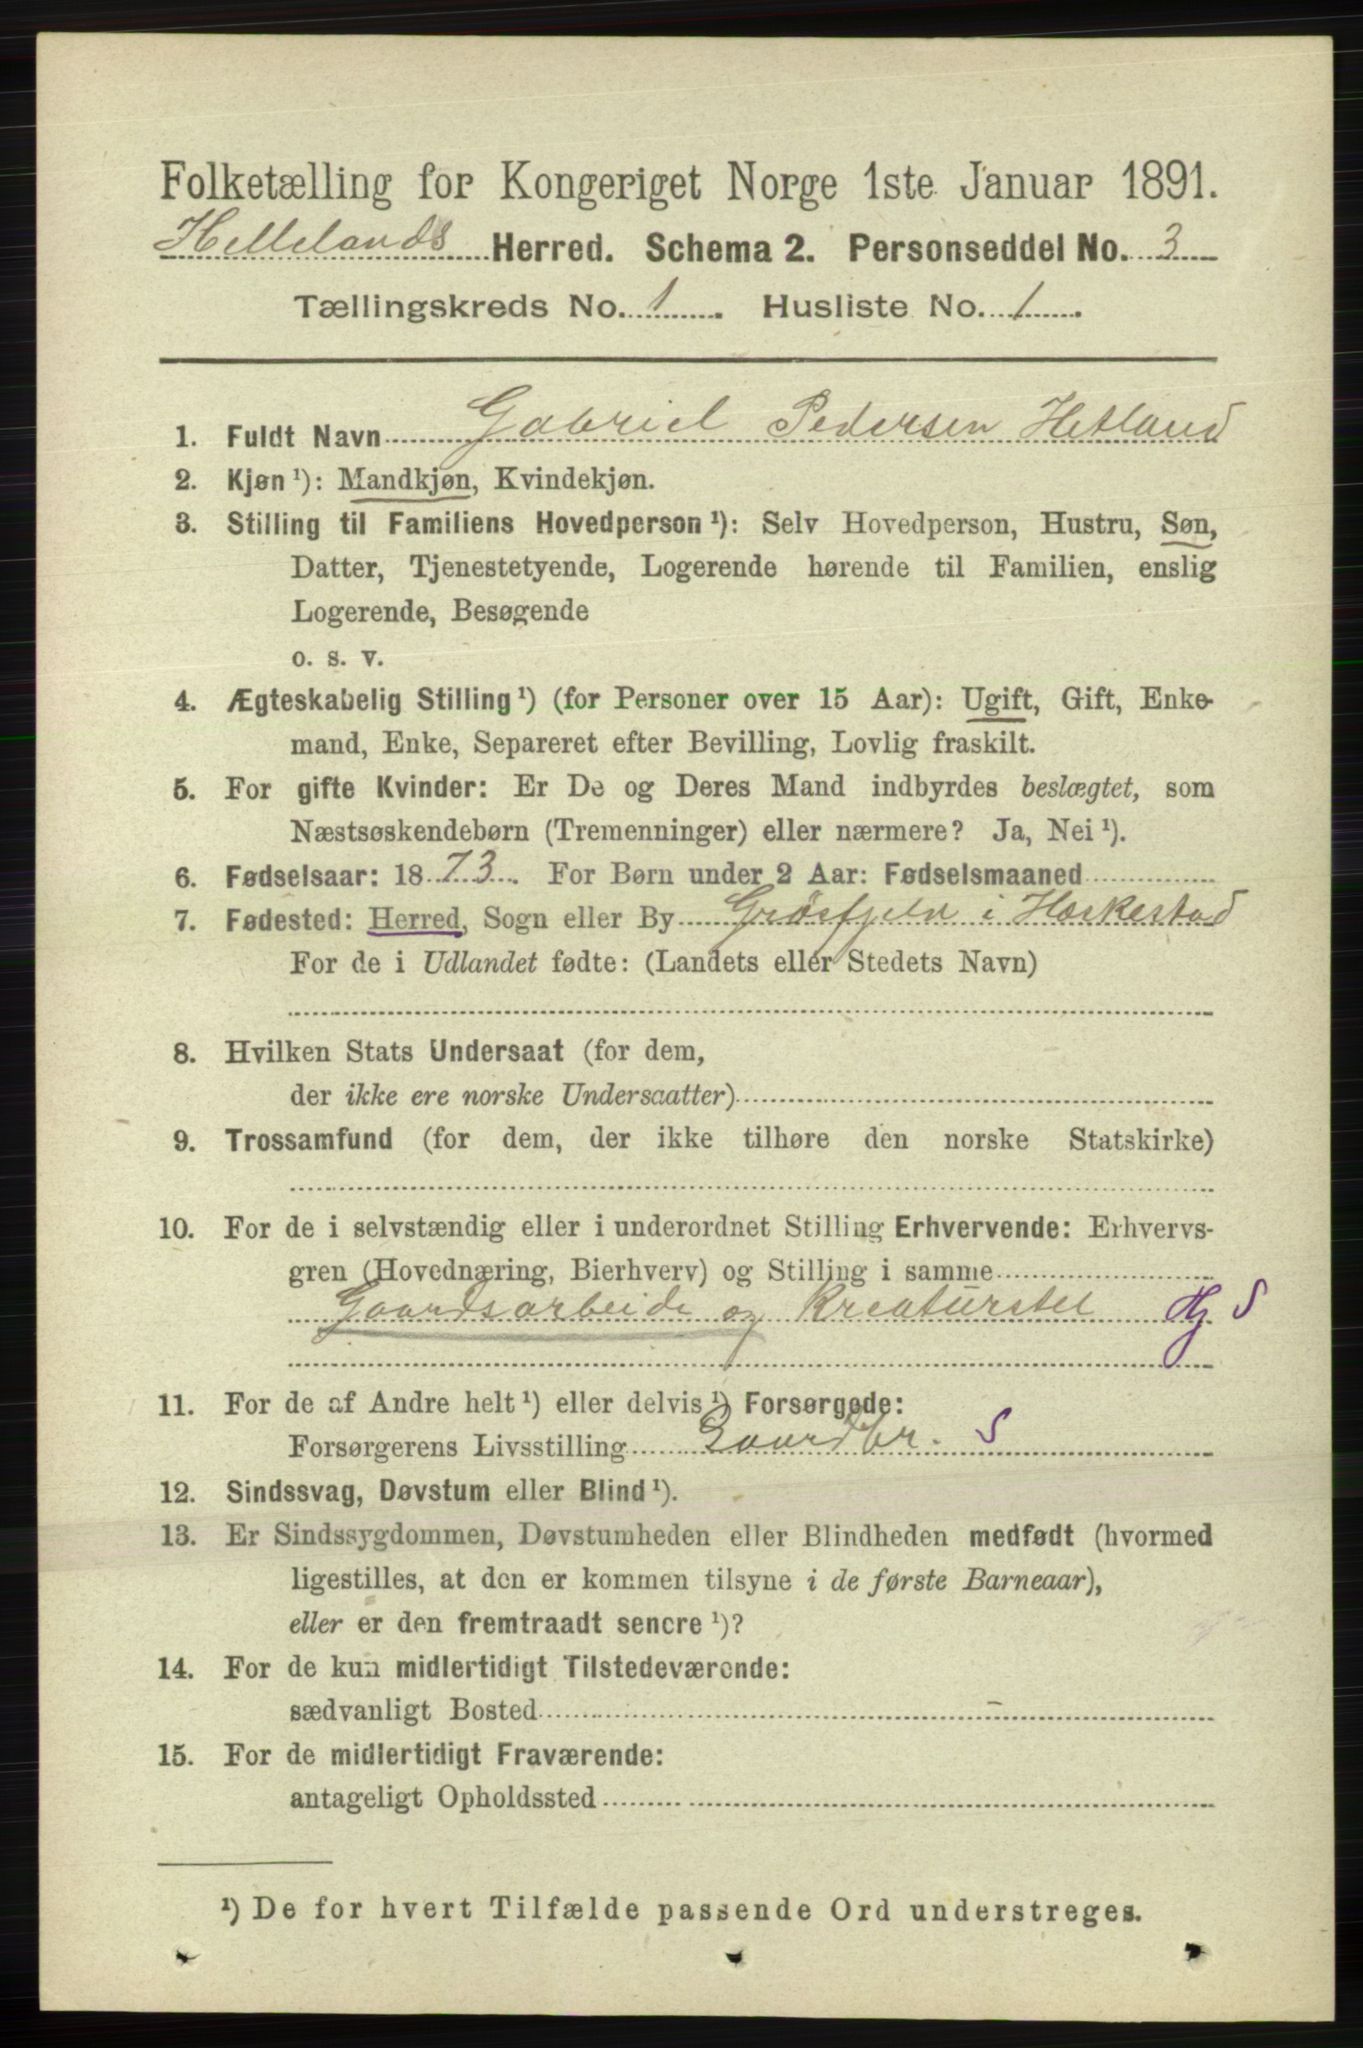 Folketælling for Kongeriget Norge 1ste Januar 1891.
Hellelands Herred. Schema 2. Personseddel No. 3
Tællingskreds No. 1. Husliste No. 1.
1. Fuldt Navn Gabriel Pedersen Hetland
2. Kjøn ¹): Mandkjøn, Kvindekjøn.
3. Stilling til Familiens Hovedperson ¹): Selv Hovedperson, Hustru, Søn,
Datter, Tjenestetyende, Logerende hørende til Familien, enslig
Logerende, Besøgende
o. s. v.
4. Ægteskabelig Stilling ¹) (for Personer over 15 Aar): Ugift, Gift, Enke-
mand, Enke, Separeret efter Bevilling, Lovlig fraskilt.
5. For gifte Kvinder: Er De og Deres Mand indbyrdes beslægtet, som
Næstsøskendebørn (Tremenninger) eller nærmere? Ja, Nei ¹).
6. Fødselsaar: 1873. For Børn under 2 Aar: Fødselsmaaned
7. Fødested: Herred, Sogn eller By Grøsfjeld i Heskestad
For de i Udlandet fødte: (Landets eller Stedets Navn)
8. Hvilken Stats Undersaat (for dem,
der ikke ere norske Undersaatter)
9. Trossamfund (for dem, der ikke tilhøre den norske Statskirke)
10. For de i selvstændig eller i underordnet Stilling Erhvervende: Erhvervs-
gren (Hovednæring, Bierhverv) og Stilling i samme
Gaardsarbeide og Kreaturstel Hj S
11. For de af Andre helt ¹) eller delvis ¹) Forsørgede:
Forsørgerens Livsstilling Gaardbr. S
12. Sindssvag, Døvstum eller Blind ¹).
13. Er Sindssygdommen, Døvstumheden eller Blindheden medfødt (hvormed
ligestilles, at den er kommen tilsyne i de første Barneaar),
eller er den fremtraadt senere ¹)?
14. For de kun midlertidigt Tilstedeværende:
sædvanligt Bosted –
15. For de midlertidigt Fraværende:
antageligt Opholdssted
¹) De for hvert Tilfælde passende Ord understreges.